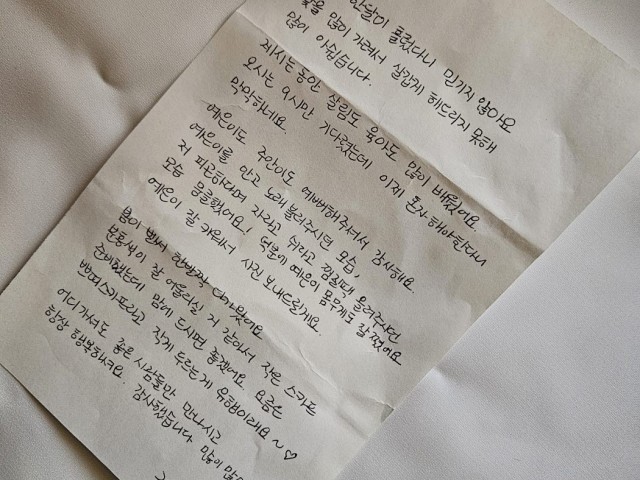 한달이 흘렀다니 믿기지 않아요
낯을 많이 가려서 살갑게 해드리지 못해
많이 아쉽습니다.
계시는 동안 살림도 육아도 많이 배웠어요.
오시는 9시만 기다렸는데 이제 혼자 해야한다니
막막하네요.
예은이도 주안이도 예뻐해주셔서 감사해요.
예은이를 안고 노래 불러주시던 모습,
저 피곤하다며 자라고 쉬라고 낌살떡 물려주시던
모습 뭉클했어요! 덕분에 예은이 몸무게도 잘 쪘어요
예은이 잘 키워서 사진 보내드릴게요.
봄이 벌써 한발짝 다가왔어요
분홍색이 잘 어울리실 거 같아서 작은 스카프
준비했는데 맘에 드시면 좋겠어요 요즘은
쁘띠스카프라고 작게 두르는게 유행이래요~♡
어디가서도 좋은 사람들만 만나시고
항상 행복하세요. 감사했습니다 많이 많이